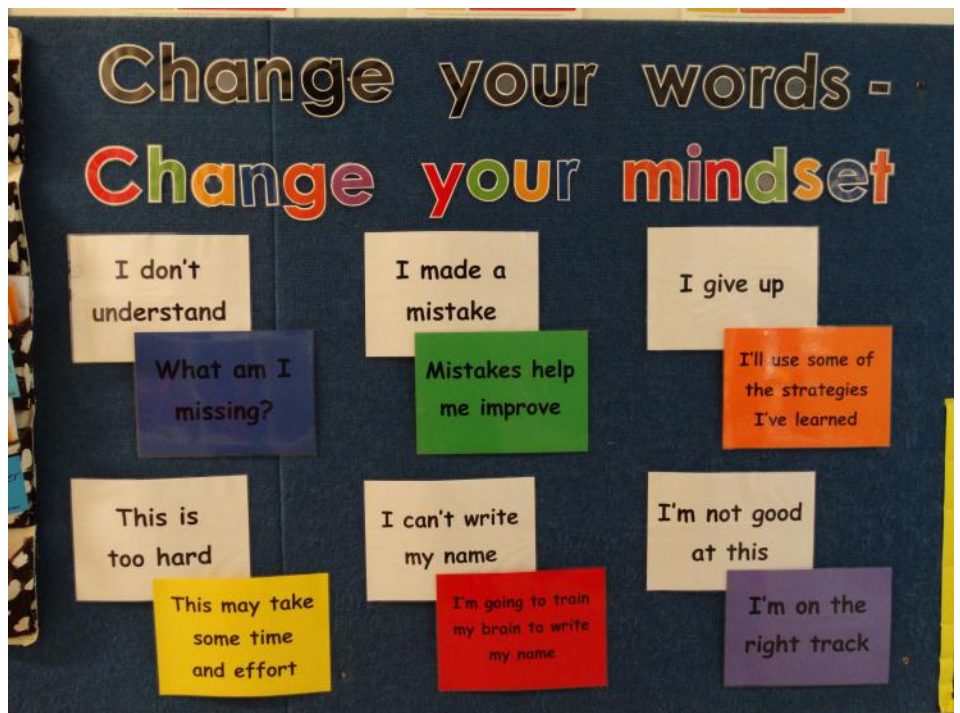 Change your words -
Change your mindset
I don't
understand
What am I
missing?
I made a
mistake
Mistakes help
me improve
I give up
I'll use some of
the strategies
I've learned
This is
too hard
This may take
some time
and effort
I can't write
my name
I'm going to train
my brain to write
my name
I'm not good
at this
I'm on the
right track